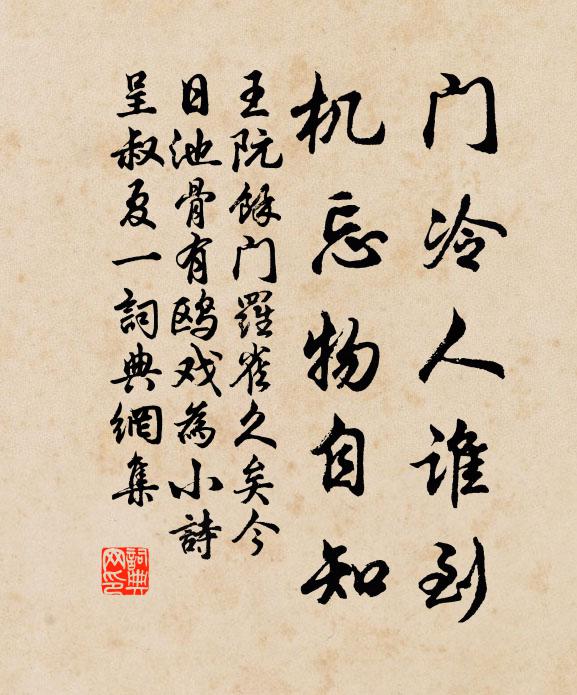 门冷人谁到
机忘物自知
王阮馀门羅雀久矣今
日池骨有鸥戏為小詩
呈叔夏一詞典網集
詞典网印